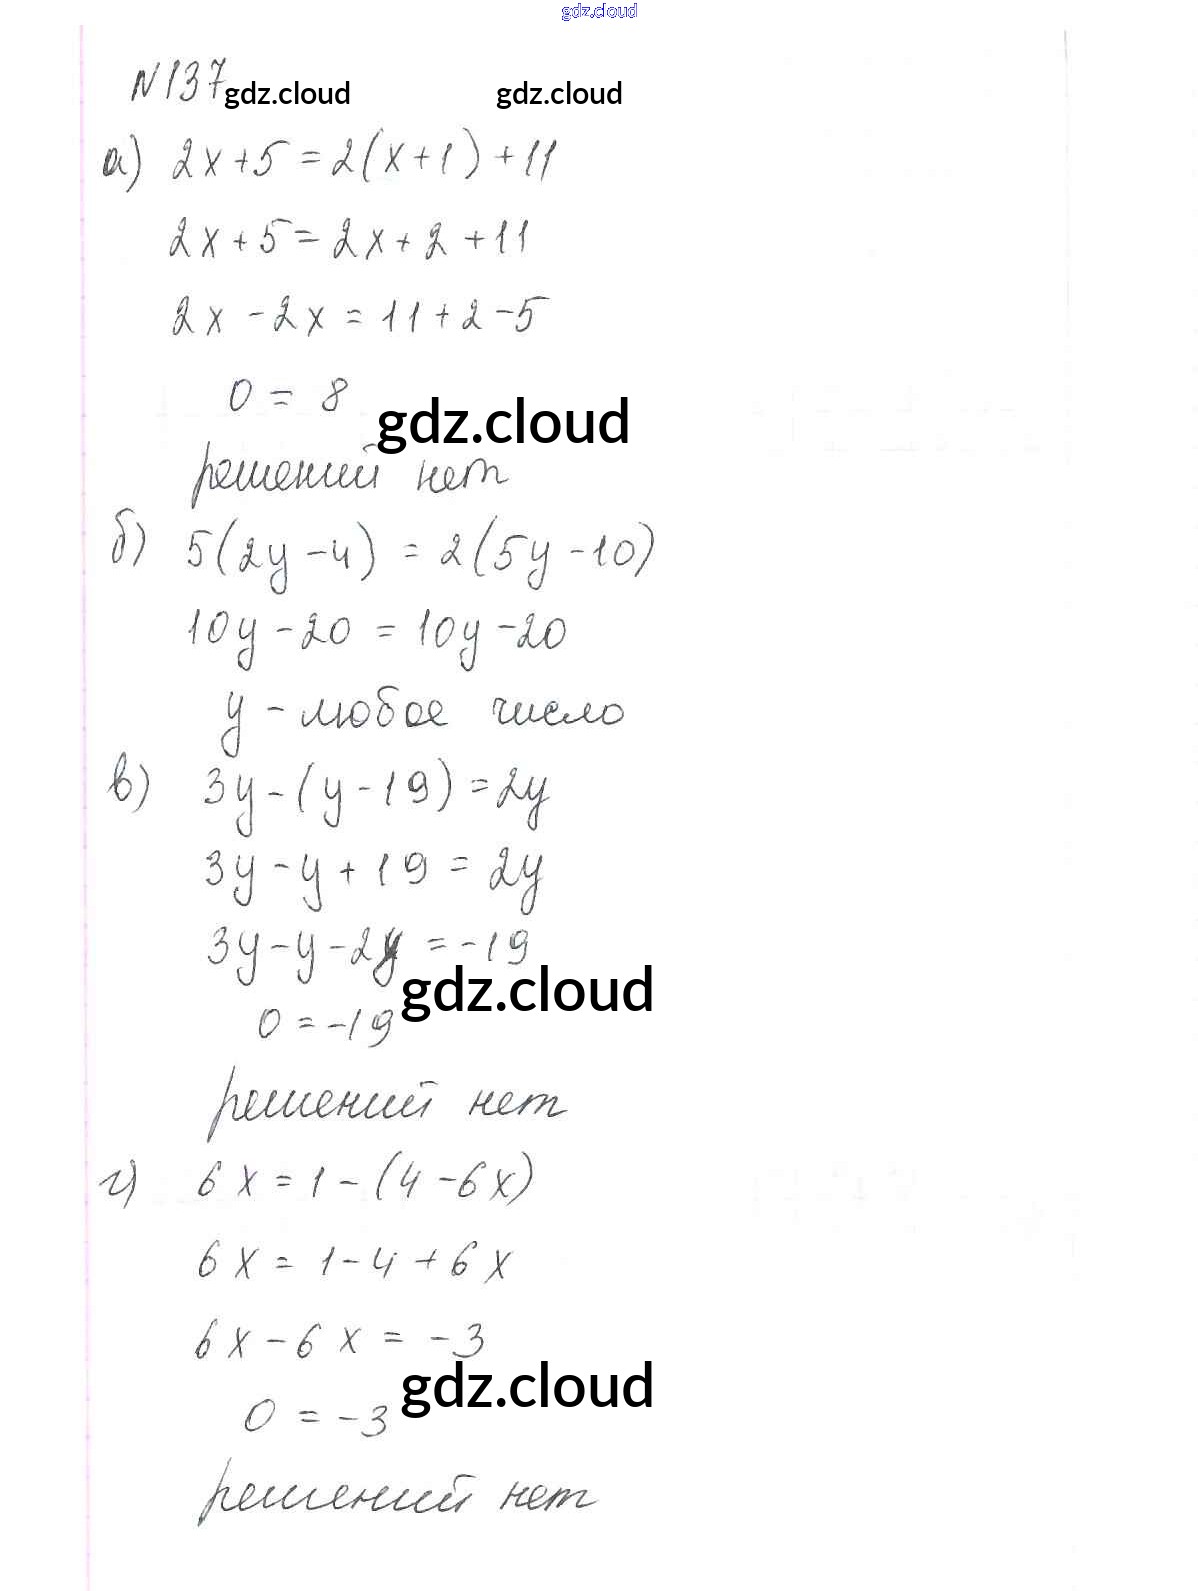 gdz.cloud
N137 gdz.cloud gdz.cloud
а) 2x+5=2(x+1)+11
2x+5=2x+2+11
2x-2x=11+2-5
0=8
gdz.cloud
решений нет
б) 5(2y-4)=2(5y-10)
10y-20=10y-20
y-любое число
в) 3y-(y-19)=2y
3y-y+19=2y
3y-y-2y=-19
gdz.cloud
0=-19
решений нет
г) 6x=1-(4-6x)
6x=1-4+6x
6x-6x=-3
gdz.cloud
0=-3
решений нет